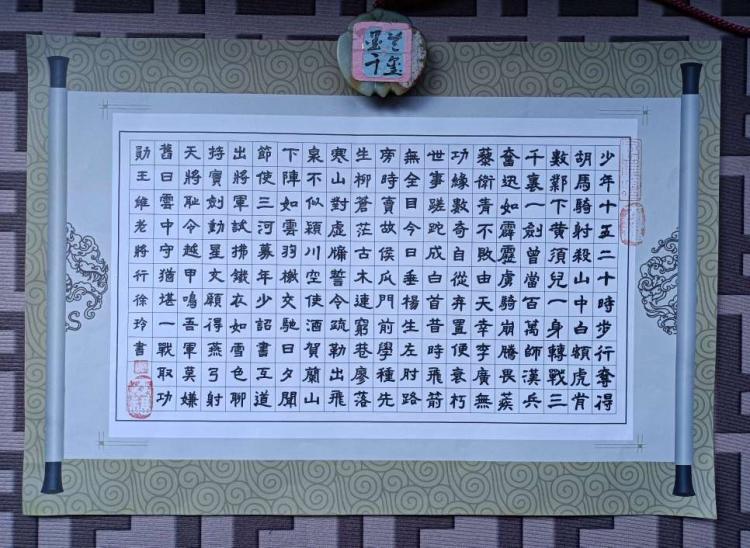 少年十五二十時步行奪得
胡馬騎射殺山中白額虎肯
數鄴下黃須兒一身轉戰三
千裏一劍曾當百萬師漢兵
奮迅如霹靂虜騎崩騰畏蒺
藜衛青不敗由天幸李廣無
功緣數奇自從弃置便衰朽
世事蹉跎成白首昔時飛箭
無全目今日垂楊生左肘路
旁時賣故侯瓜門前學種先
生柳蒼茫古木連窮巷廖落
寒山對虛牖誓令疏勒出飛
泉不似潁川空使酒賀蘭山
下陣如雲羽檄交馳日夕聞
節使三河募年少詔書五道
出將軍試拂鐵衣如雪色聊
持寶劍動星文願得燕弓射
天將耻令越甲鳴吾軍莫嫌
舊日雲中守猶堪一戰取功
勛王維老將行徐玲書